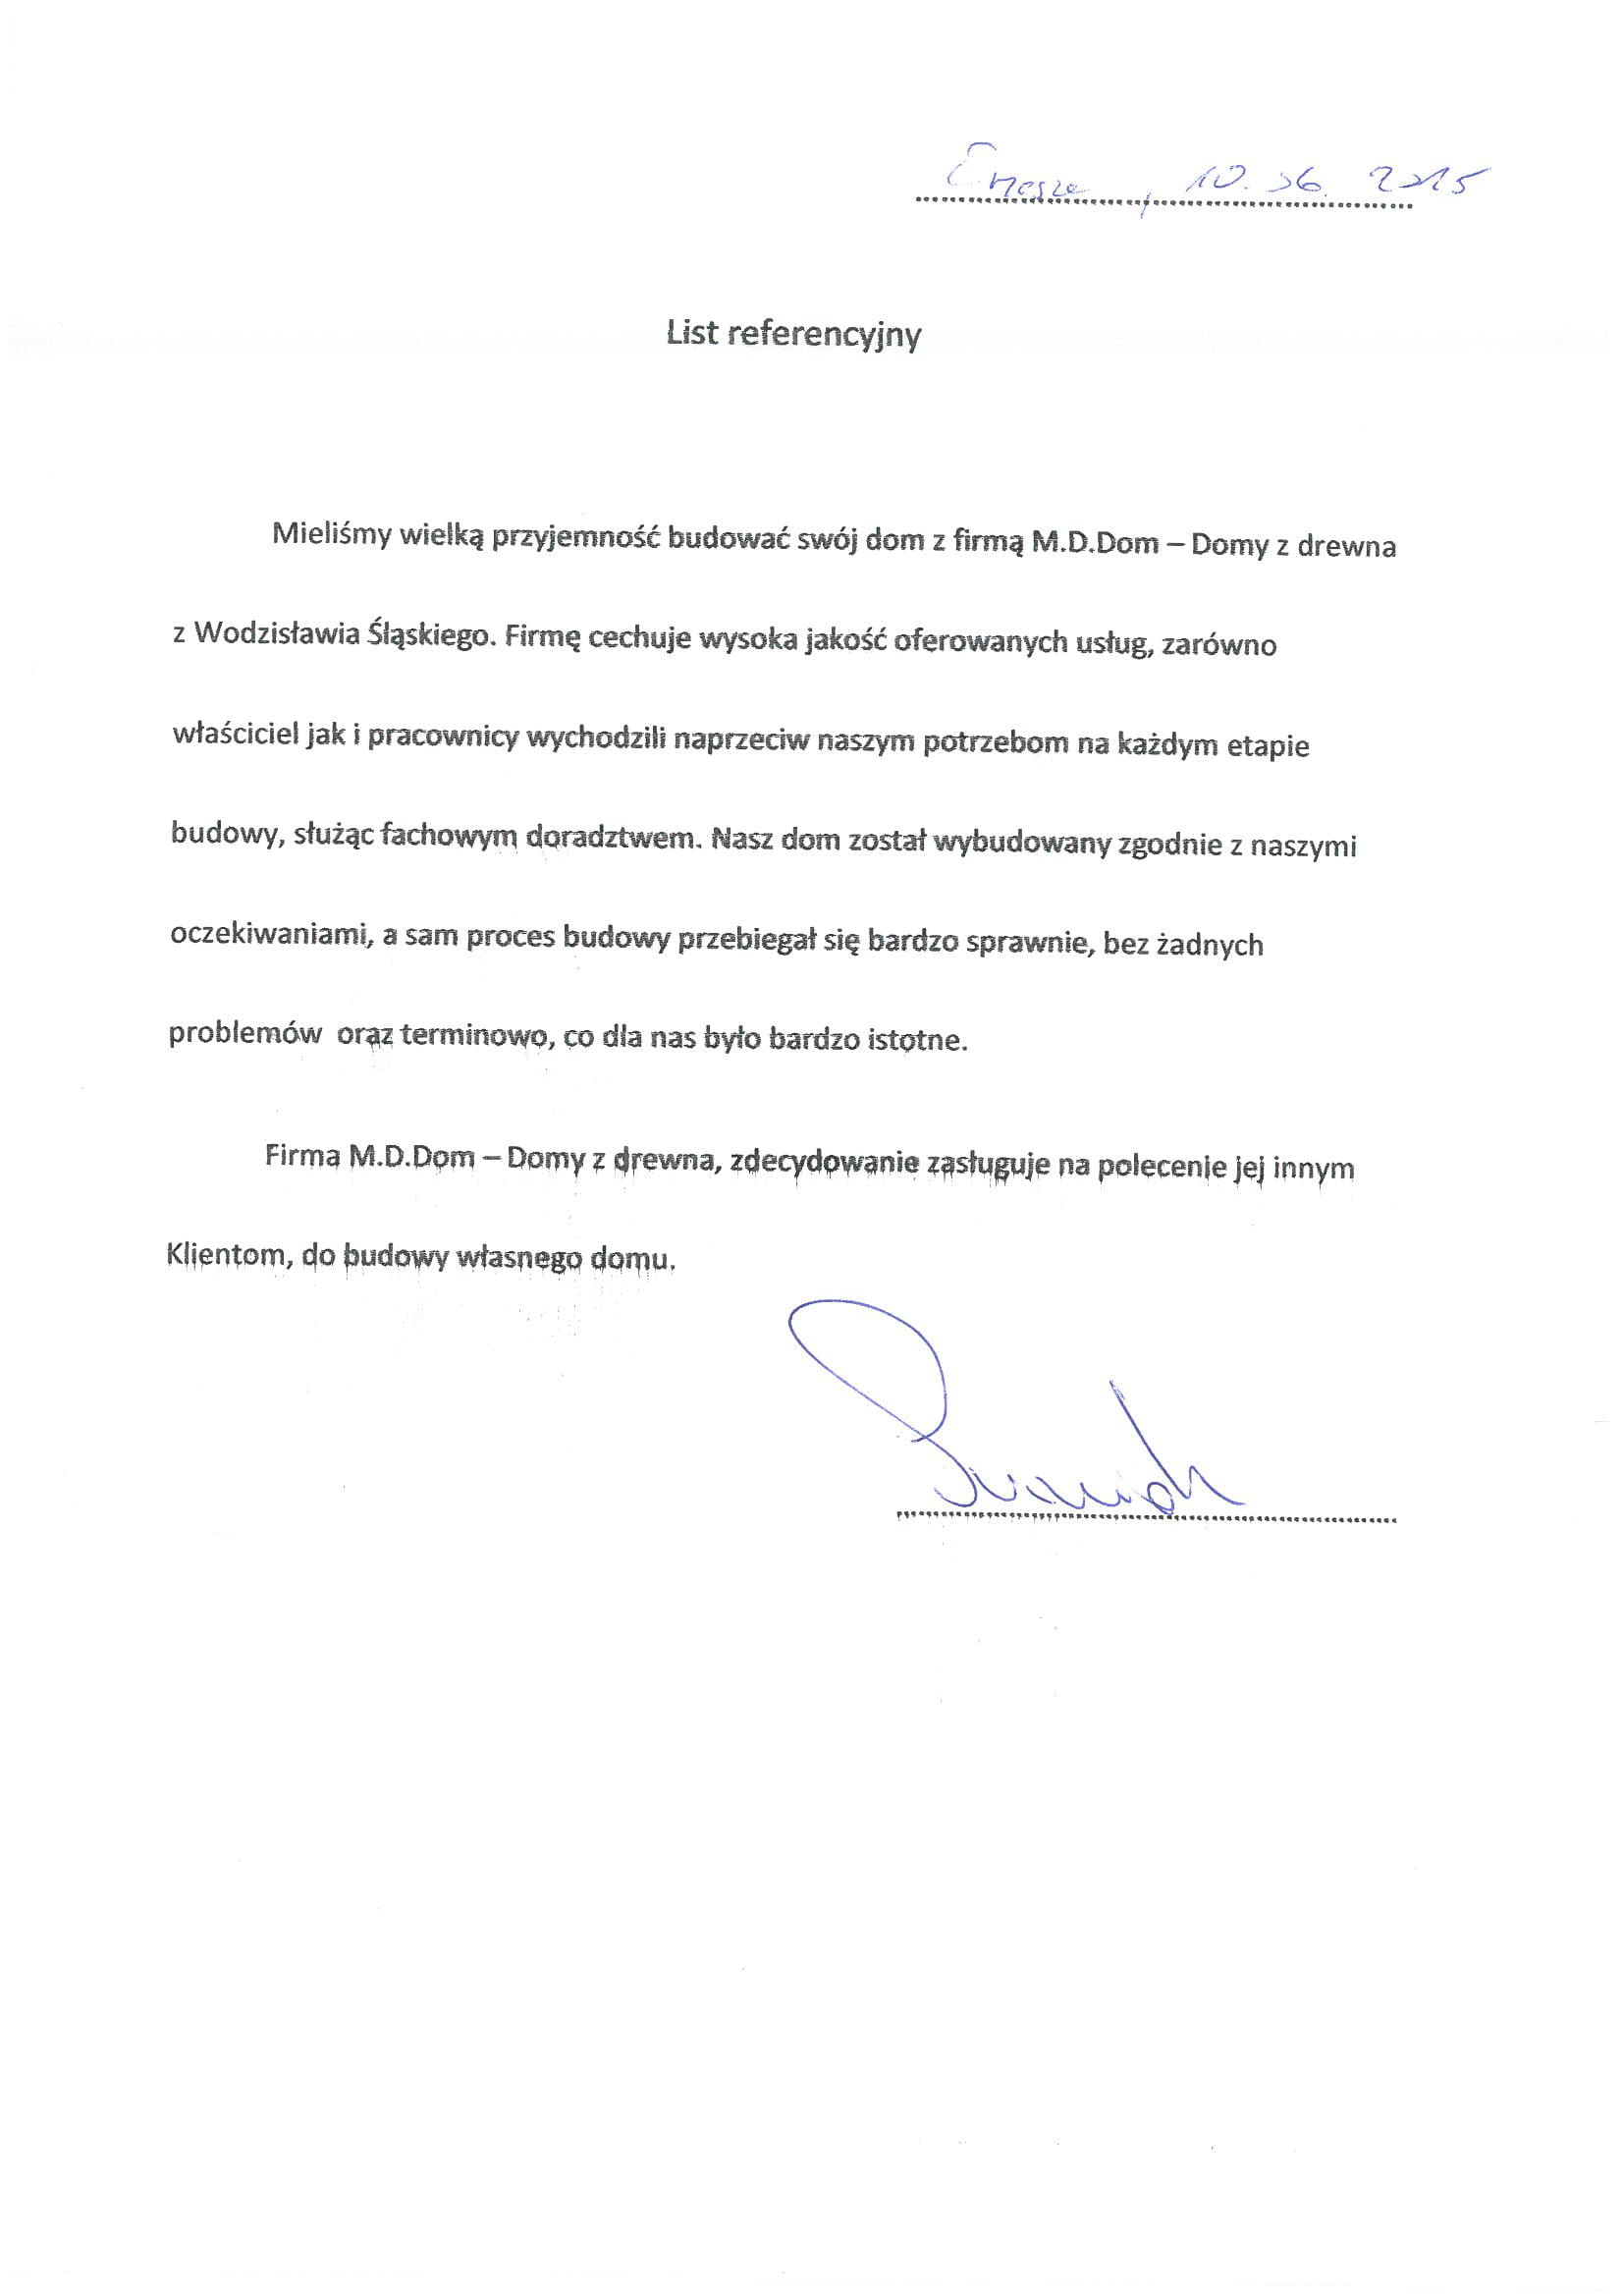 10.06.2015
List referencyjny
Mieliśmy wielką przyjemność budować swój dom z firmą M.D.Dom – Domy z drewna
z Wodzisławia Śląskiego. Firmę cechuje wysoka jakość oferowanych usług, zarówno
właściciel jak i pracownicy wychodzili naprzeciw naszym potrzebom na każdym etapie
budowy, służąc fachowym doradztwem. Nasz dom został wybudowany zgodnie z naszymi
oczekiwaniami, a sam proces budowy przebiegał się bardzo sprawnie, bez żadnych
problemów oraz terminowo, co dla nas było bardzo istotne.
Firma M.D.Dom – Domy z drewna, zdecydowanie zasługuje na polecenie jej innym
Klientom, do budowy własnego domu.